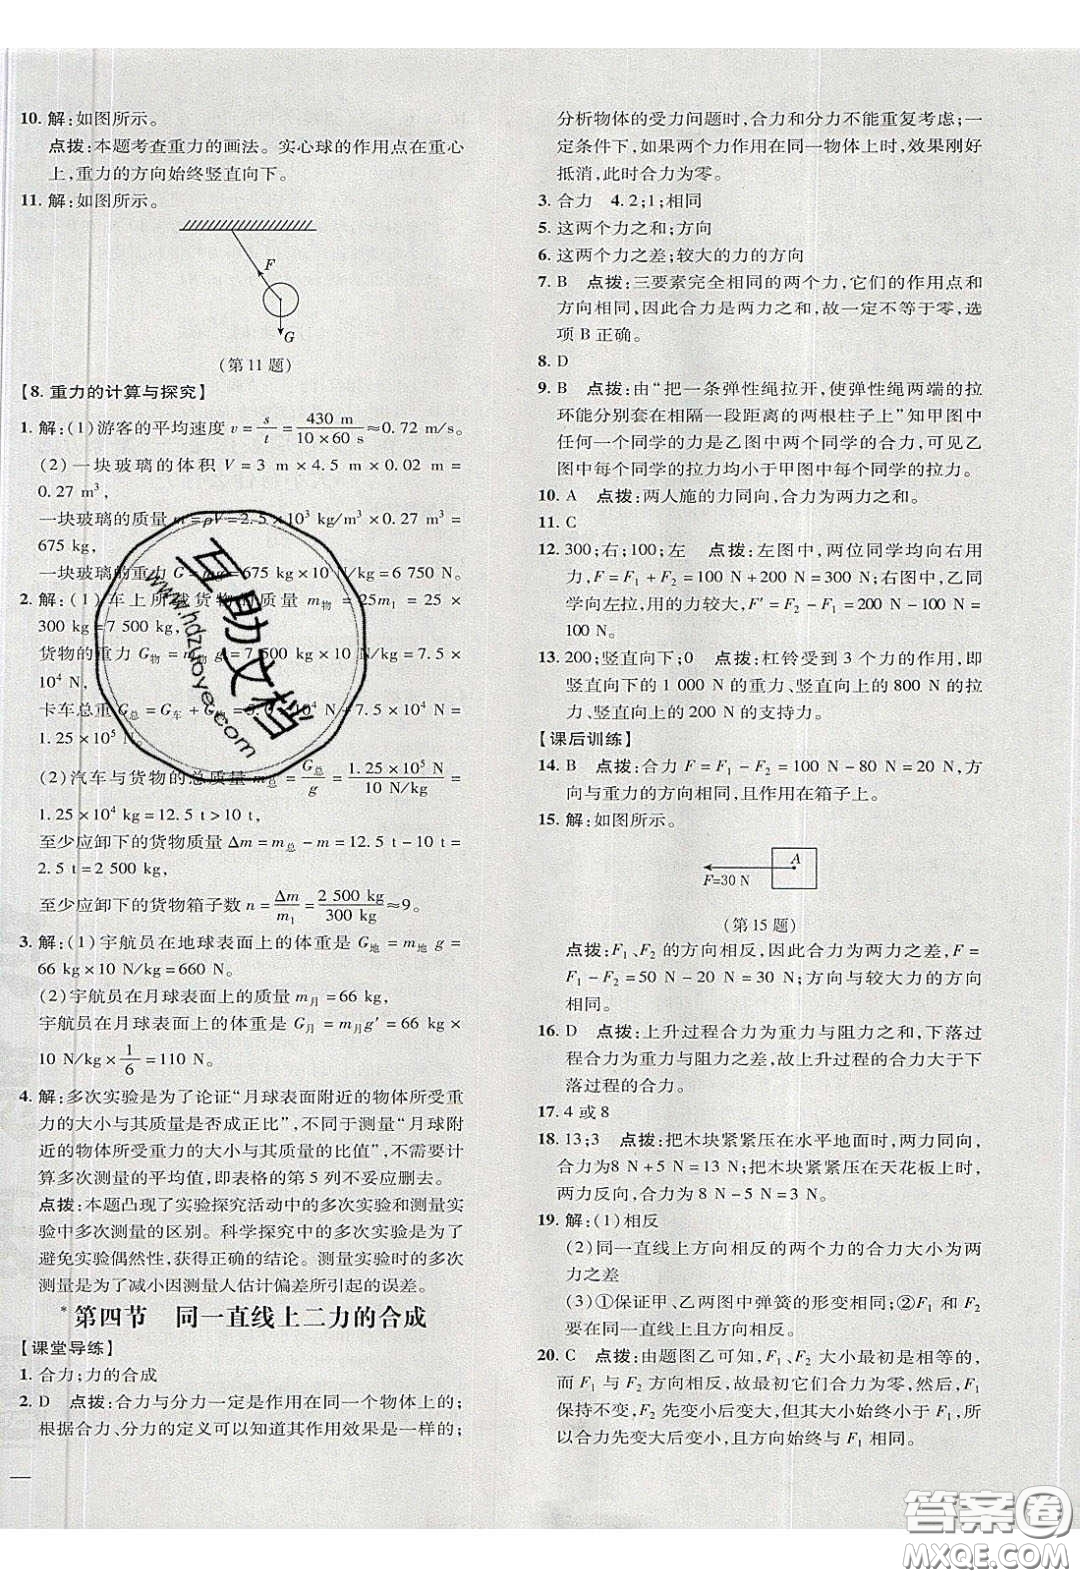 10. 解:如图所示。
点拨:本题考查重力的画法。实心球的作用点在重心
上,重力的方向始终竖直向下。
11. 解:如图所示。
F
G
(第 11 题)
【8. 重力的计算与探究】
1. 解:(1)游客的平均速度 v=s/t=430 m/(10×60 s)≈0.72 m/s。
(2)一块玻璃的体积 V=3 m×4.5 m×0.02 m=
0.27 m³,
一块玻璃的质量 m=ρV=2.5×10³ kg/m³×0.27 m³=
675 kg,
一块玻璃的重力 G=mg=675 kg×10 N/kg=6 750 N。
2. 解:(1)车上所载货物的质量 m物=25m₁=25×
300 kg=7 500 kg,
货物的重力 G物=m物 g=7 500 kg×10 N/kg=7.5×
10⁴ N,
卡车总重 G总=G车+G物=5.0×10⁴ N+7.5×10⁴ N=
1.25×10⁵ N。
(2)汽车与货物的总质量 m总=G总/g=1.25×10⁵ N/(10 N/kg)=
1.25×10⁴ kg=12.5 t>10 t,
至少应卸下的货物质量 Δm=m总-m=12.5 t-10 t=
2.5 t=2 500 kg,
至少应卸下的货物箱子数 n=Δm/m₁=2 500 kg/300 kg≈9。
3. 解:(1)宇航员在地球表面上的体重是 G地=m地 g=
66 kg×10 N/kg=660 N。
(2)宇航员在月球表面上的质量 m月=66 kg,
宇航员在月球表面上的体重是 G月=m月g′=66 kg
×10 N/kg×1/6=110 N。
4. 解:多次实验是为了论证“月球表面附近的物体所受重
力的大小与其质量是否成正比”,不同于测量“月球附
近的物体所受重力的大小与其质量的比值”,不需要计
算多次测量的平均值,即表格的第 5 列不妥应删去。
点拨:本题凸现了实验探究活动中的多次实验和测量实
验中多次测量的区别。科学探究中的多次实验是为了
避免实验偶然性,获得正确的结论。测量实验时的多次
测量是为了减小因测量人估计偏差所引起的误差。
*第四节 同一直线上二力的合成
【课堂导练】
1. 合力;力的合成
2. D 点拨:合力与分力一定是作用在同一个物体上的;
根据合力、分力的定义可以知道其作用效果是一样的;
分析物体的受力问题时,合力和分力不能重复考虑;一
定条件下,如果两个力作用在同一物体上时,效果刚好
抵消,此时合力为零。
3. 合力 4. 2;1;相同
5. 这两个力之和;方向
6. 这两个力之差;较大的力的方向
7. B 点拨:三要素完全相同的两个力,它们的作用点和
方向相同,因此合力是两力之和,故一定不等于零,选
项 B 正确。
8. D
9. B 点拨:由“把一条弹性绳拉开,使弹性绳两端的拉
环能分别套在相隔一段距离的两根柱子上”知甲图中
任何一个同学的力是乙图中两个同学的合力,可见乙
图中每个同学的拉力均小于甲图中每个同学的拉力。
10. A 点拨:两人施的力同向,合力为两力之和。
11. C
12. 300;右;100;左 点拨:左图中,两位同学均向右用
力,F=F₁+F₂=100 N+200 N=300 N;右图中,乙同
学向左拉,用的力较大,F′=F₂-F₁=200 N-100 N=
100 N。
13. 200;竖直向下;0 点拨:杠铃受到 3 个力的作用,即
竖直向下的 1 000 N 的重力、竖直向上的 800 N 的拉
力、竖直向上的 200 N 的支持力。
【课后训练】
14. B 点拨:合力 F=F₁-F₂=100 N-80 N=20 N,方
向与重力的方向相同,且作用在箱子上。
15. 解:如图所示。
A
F=30 N
(第 15 题)
点拨:F₁、F₂ 的方向相反,因此合力为两力之差,F=
F₁-F₂=50 N-20 N=30 N;方向与较大力的方向
相同。
16. D 点拨:上升过程合力为重力与阻力之和,下落过
程合力为重力与阻力之差,故上升过程的合力大于下
落过程的合力。
17. 4 或 8
18. 13;3 点拨:把木块紧紧压在水平地面时,两力同向,
合力为8 N+5 N=13 N;把木块紧紧压在天花板上时,
两力反向,合力为 8 N-5 N=3 N。
19. 解:(1)相反
(2)同一直线上方向相反的两个力的合力大小为两
力之差
(3)①保证甲、乙两图中弹簧的形变相同;②F₁ 和 F₂
在同一直线上且方向相同。
20. C 点拨:由题图乙可知,F₁、F₂ 大小最初是相等的,
而 F₁ 与 F₂ 方向相反,故最初二力合力为零,然后,F₁
保持不变,F₂ 先变小后变大,但其大小始终小于 F₁,所
以合力先变大后变小,且方向始终与 F₁ 相同。
互助文档
www.hdzuoye.com
答案圈
MXQE.COM